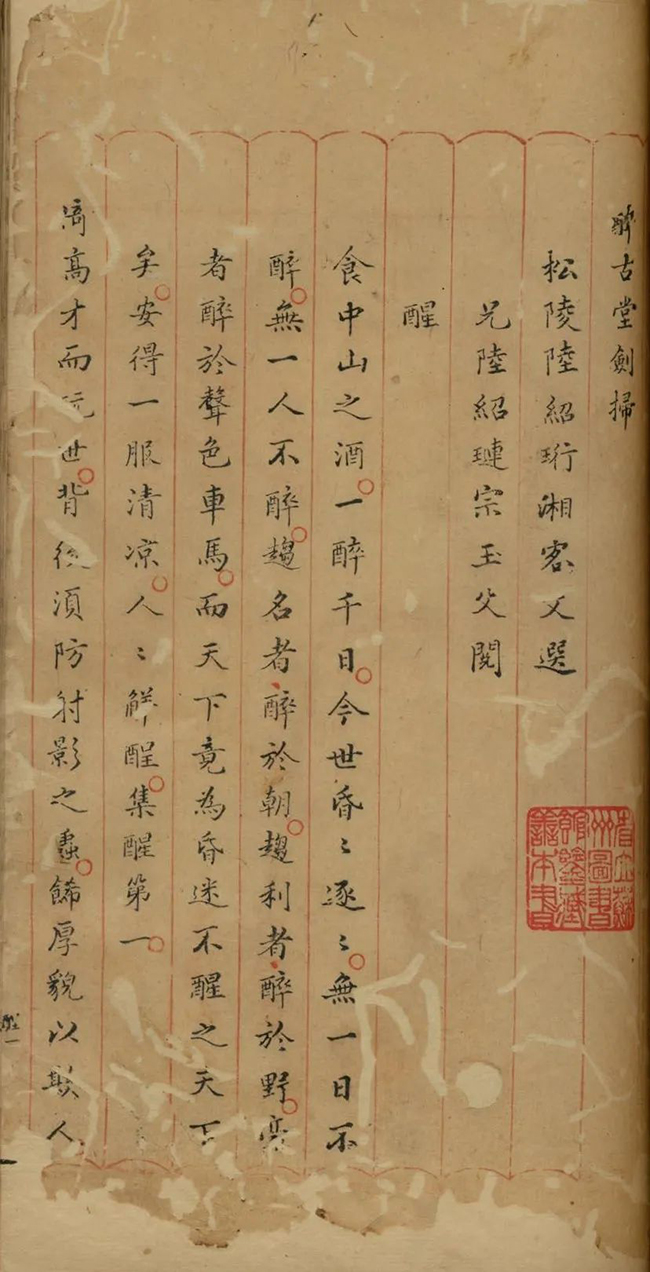 醉古堂劍掃
松陵陸紹珩湘客父選
兄陸紹璉宗玉父閱
醒
食中山之酒一醉千日今世昏〻逐〻無一日不
醉無一人不醉趨名者醉於朝趨利者醉於野豪
者醉於聲色車馬而天下竟為昏迷不醒之天下
矣安得一服清凉人〻解酲集醒第一
倚高才而玩世背後須防射影之蟲飾厚貌以欺人
省立蘇
州圖書
館鑒藏
善本書